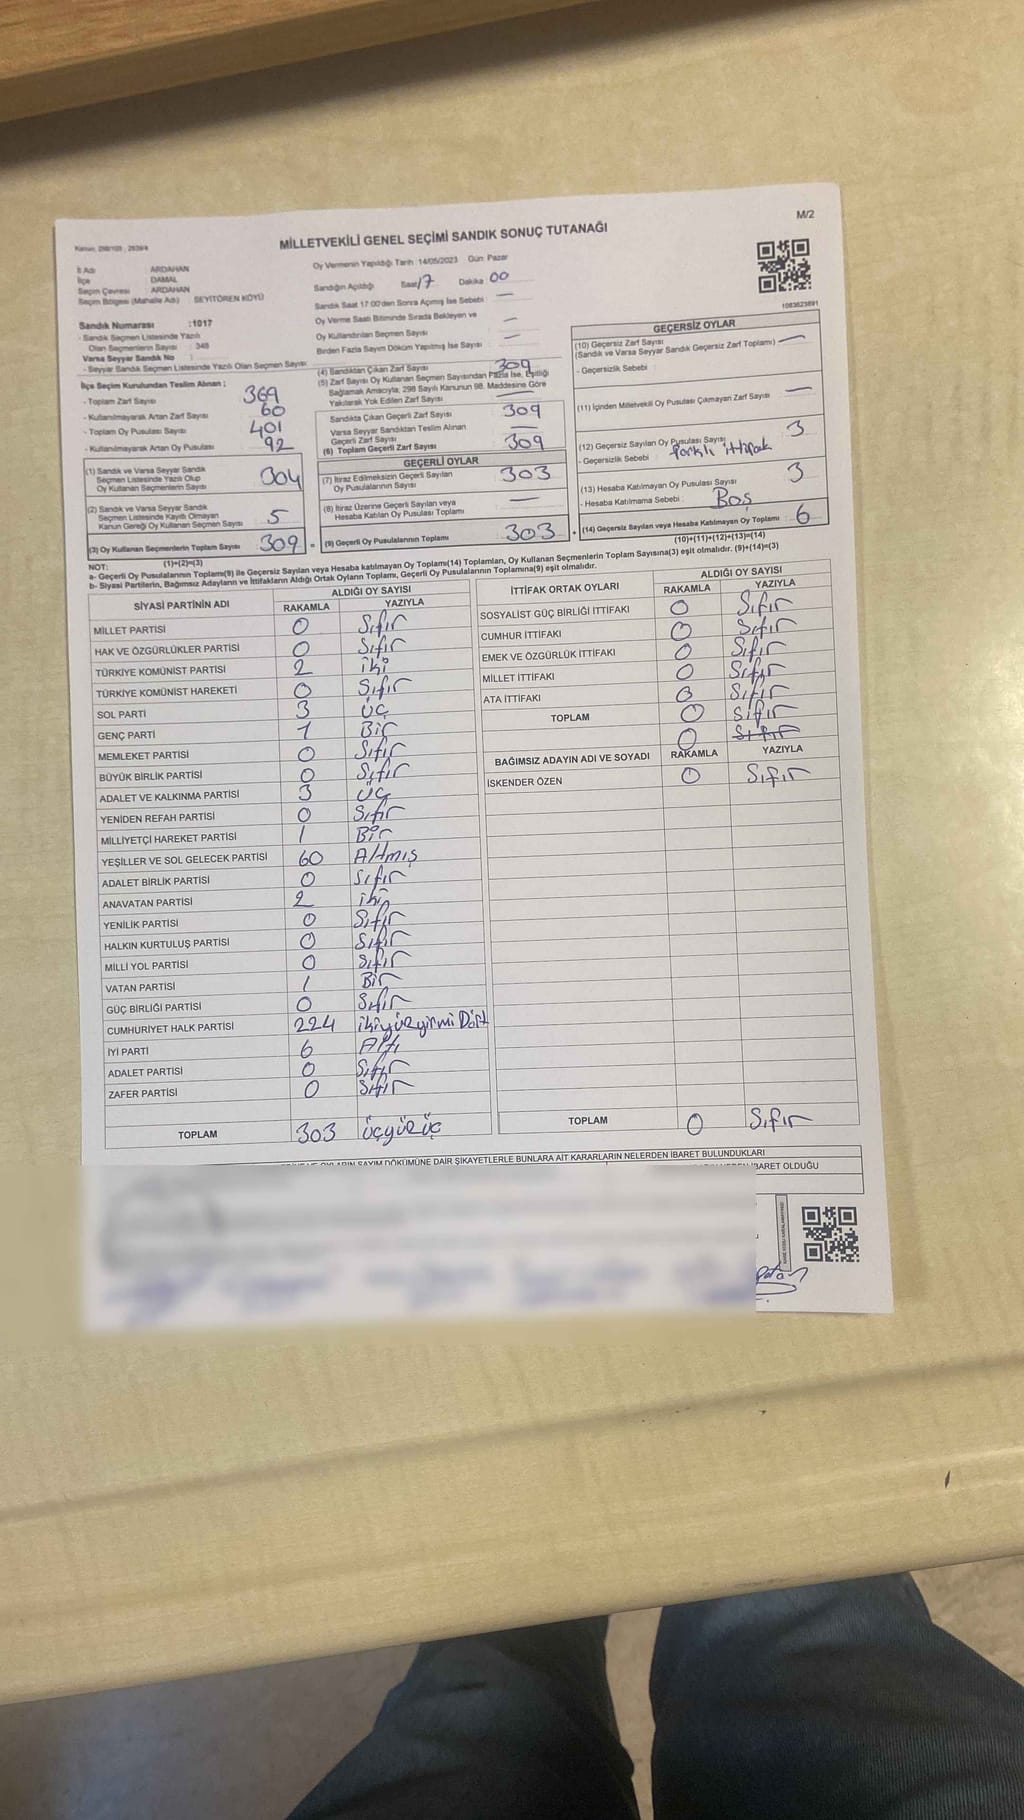 M/2
MİLLETVEKİLİ GENEL SEÇİMİ SANDIK SONUÇ TUTANAĞI
İl Adı : ARDAHAN
İlçe : DAMAL
Seçim Çevresi : ARDAHAN
Seçim Bölgesi (Mahalle Adı) : SEYİTÖREN KÖYÜ
Oy Vermenin Yapıldığı Tarih :14/05/2023 Gün Pazar
Sandığın Açıldığı Saat 17 Dakika 00
Sandık Saat 17:00'den Sonra Açmış İse Sebebi : —
Oy Verme Saati Bitiminde Sırada Bekleyen ve
Oy Kullandırılan Seçmen Sayısı —
Birden Fazla Sayım Döküm Yapılmış İse Sayısı : —
1083623891
Sandık Numarası :1017
- Sandık Seçmen Listesinde Yazılı
Olan Seçmenlerin Sayısı : 348
Varsa Seyyar Sandık No :
- Seyyar Sandık Seçmen Listesinde Yazılı Olan Seçmen Sayısı
İlçe Seçim Kurulundan Teslim Alınan ;
- Toplam Zarf Sayısı 369
- Kullanılmayarak Artan Zarf Sayısı 60
- Toplam Oy Pusulası Sayısı 401
- Kullanılmayarak Artan Oy Pusulası 92
(1) Sandık ve Varsa Seyyar Sandık
Seçmen Listesinde Yazılı Olup
Oy Kullanan Seçmenlerin Sayısı 304
(2) Sandık ve Varsa Seyyar Sandık
Seçmen Listesinde Kayıtlı Olmayan
Kanun Gereği Oy Kullanan Seçmen Sayısı 5
(3) Oy Kullanan Seçmenlerin Toplam Sayısı 309
(1)+(2)=(3)
(4) Sandıktan Çıkan Zarf Sayısı 309
(5) Zarf Sayısı Oy Kullanan Seçmen Sayısından Fazla İse, Eşitliği
Sağlamak Amacıyla, 298 Sayılı Kanunun 98. Maddesine Göre
Yakılarak Yok Edilen Zarf Sayısı —
Sandıkta Çıkan Geçerli Zarf Sayısı 309
Varsa Seyyar Sandıktan Teslim Alınan
Geçerli Zarf Sayısı —
(6) Toplam Geçerli Zarf Sayısı 309
GEÇERLİ OYLAR
(7) İtiraz Edilmeksizin Geçerli Sayılan
Oy Pusulalarının Sayısı 303
(8) İtiraz Üzerine Geçerli Sayılan veya
Hesaba Katılan Oy Pusulası Toplamı —
(9) Geçerli Oy Pusulalarının Toplamı 303
GEÇERSİZ OYLAR
(10) Geçersiz Zarf Sayısı
(Sandık ve Varsa Seyyar Sandık Geçersiz Zarf Toplamı) —
- Geçersizlik Sebebi
(11) İçinden Milletvekili Oy Pusulası Çıkmayan Zarf Sayısı —
(12) Geçersiz Sayılan Oy Pusulası Sayısı 3
- Geçersizlik Sebebi : Farklı ittifak
(13) Hesaba Katılmayan Oy Pusulası Sayısı 3
- Hesaba Katılmama Sebebi : Boş
(14) Geçersiz Sayılan veya Hesaba Katılmayan Oy Toplamı 6
(10)+(11)+(12)+(13)=(14)
NOT:
a- Geçerli Oy Pusulalarının Toplamı(9) ile Geçersiz Sayılan veya Hesaba Katılmayan Oy Toplamı(14) Toplamları, Oy Kullanan Seçmenlerin Toplam Sayısına(3) eşit olmalıdır. (9)+(14)=(3)
b- Siyasi Partilerin, Bağımsız Adayların ve İttifakların Aldığı Ortak Oyların Toplamı, Geçerli Oy Pusulalarının Toplamına(9) eşit olmalıdır.
SİYASİ PARTİNİN ADI ALDIĞI OY SAYISI
RAKAMLA YAZIYLA
MİLLET PARTİSİ 0 Sıfır
HAK VE ÖZGÜRLÜKLER PARTİSİ 0 Sıfır
TÜRKİYE KOMÜNİST PARTİSİ 2 iki
TÜRKİYE KOMÜNİST HAREKETİ 0 Sıfır
SOL PARTİ 3 Üç
GENÇ PARTİ 1 Bir
MEMLEKET PARTİSİ 0 Sıfır
BÜYÜK BİRLİK PARTİSİ 0 Sıfır
ADALET VE KALKINMA PARTİSİ 3 Üç
YENİDEN REFAH PARTİSİ 0 Sıfır
MİLLİYETÇİ HAREKET PARTİSİ 1 Bir
YEŞİLLER VE SOL GELECEK PARTİSİ 60 Altmış
ADALET BİRLİK PARTİSİ 0 Sıfır
ANAVATAN PARTİSİ 2 iki
YENİLİK PARTİSİ 0 Sıfır
HALKIN KURTULUŞ PARTİSİ 0 Sıfır
MİLLİ YOL PARTİSİ 0 Sıfır
VATAN PARTİSİ 1 Bir
GÜÇ BİRLİĞİ PARTİSİ 0 Sıfır
CUMHURİYET HALK PARTİSİ 224 ikiyüzyirmi Dört
İYİ PARTİ 6 Altı
ADALET PARTİSİ 0 Sıfır
ZAFER PARTİSİ 0 Sıfır
TOPLAM 303 üçyüz üç
İTTİFAK ORTAK OYLARI ALDIĞI OY SAYISI
RAKAMLA YAZIYLA
SOSYALİST GÜÇ BİRLİĞİ İTTİFAKI 0 Sıfır
CUMHUR İTTİFAKI 0 Sıfır
EMEK VE ÖZGÜRLÜK İTTİFAKI 0 Sıfır
MİLLET İTTİFAKI 0 Sıfır
ATA İTTİFAKI 0 Sıfır
TOPLAM 0 Sıfır
0 Sıfır
BAĞIMSIZ ADAYIN ADI VE SOYADI RAKAMLA YAZIYLA
İSKENDER ÖZEN 0 Sıfır
TOPLAM 0 Sıfır
OYLARIN SAYIM DÖKÜMÜNE DAİR ŞİKAYETLERLE BUNLARA AİT KARARLARIN NELERDEN İBARET BULUNDUKLARI
İBARET OLDUĞU